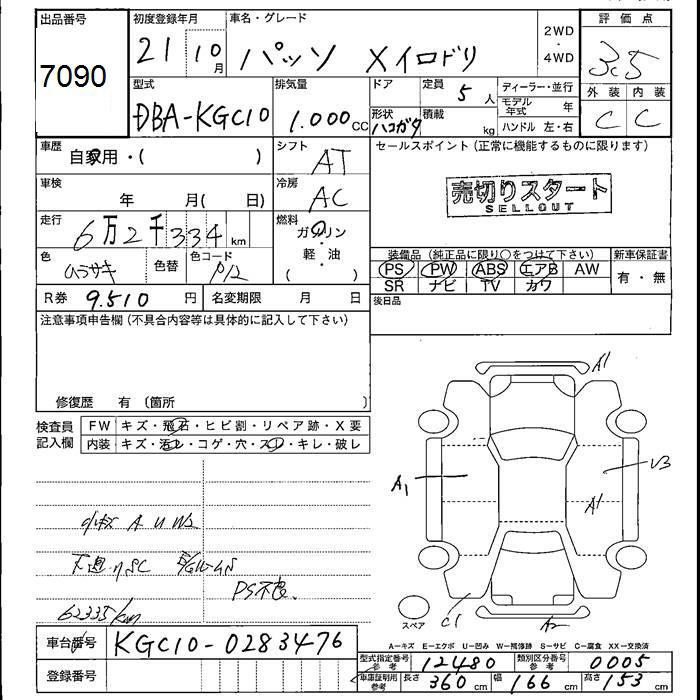 出品番号
7090
初度登録年月
21 10月
車名・グレード
パッソ Xイロドリ
2WD
・
4WD
評価点
3.5
外装 内装
C C
型式
DBA-KGC10
排気量
1.000CC
ドア
定員 5人
形状 ハコガタ
積載 kg
ディーラー・並行
モデル年式 年
ハンドル 左・右
車歴
自家用・( )
シフト AT
セールスポイント(正常に機能するものに限ります)
売切りスタート
SELLOUT
車検 年 月( 日)
冷房 AC
走行 6万2千334km
燃料
ガソリン
・
軽・油
( )
色 ムラサキ
色替
色コード P12
装備品(純正品に限り○をつけて下さい)
PS PW ABS エアB AW
SR ナビ TV カワ
新車保証書
有・無
R券 9.510円
名変期限 月 日
後日品
注意事項申告欄(不具合内容等は具体的に記入して下さい)
修復歴 有(箇所 )
検査員記入欄
FW キズ・飛石・ヒビ割・リペア跡・X要
内装 キズ・汚レ・コゲ・穴・スレ・キレ・破レ
小キズ A U W2
下廻りSC
PS不良.
62335km
A1
A1
V3
A1
C1
A2
スペア
A-キズ E-エクボ U-凹み W-補修跡 S-サビ C-腐食 XX-交換済
車台番号 KGC10-0283476
登録番号
型式指定番号 参考 12480
類別区分番号 参考 0005
車庫証明用 参考 長さ 360cm 幅 166cm 高さ 153cm